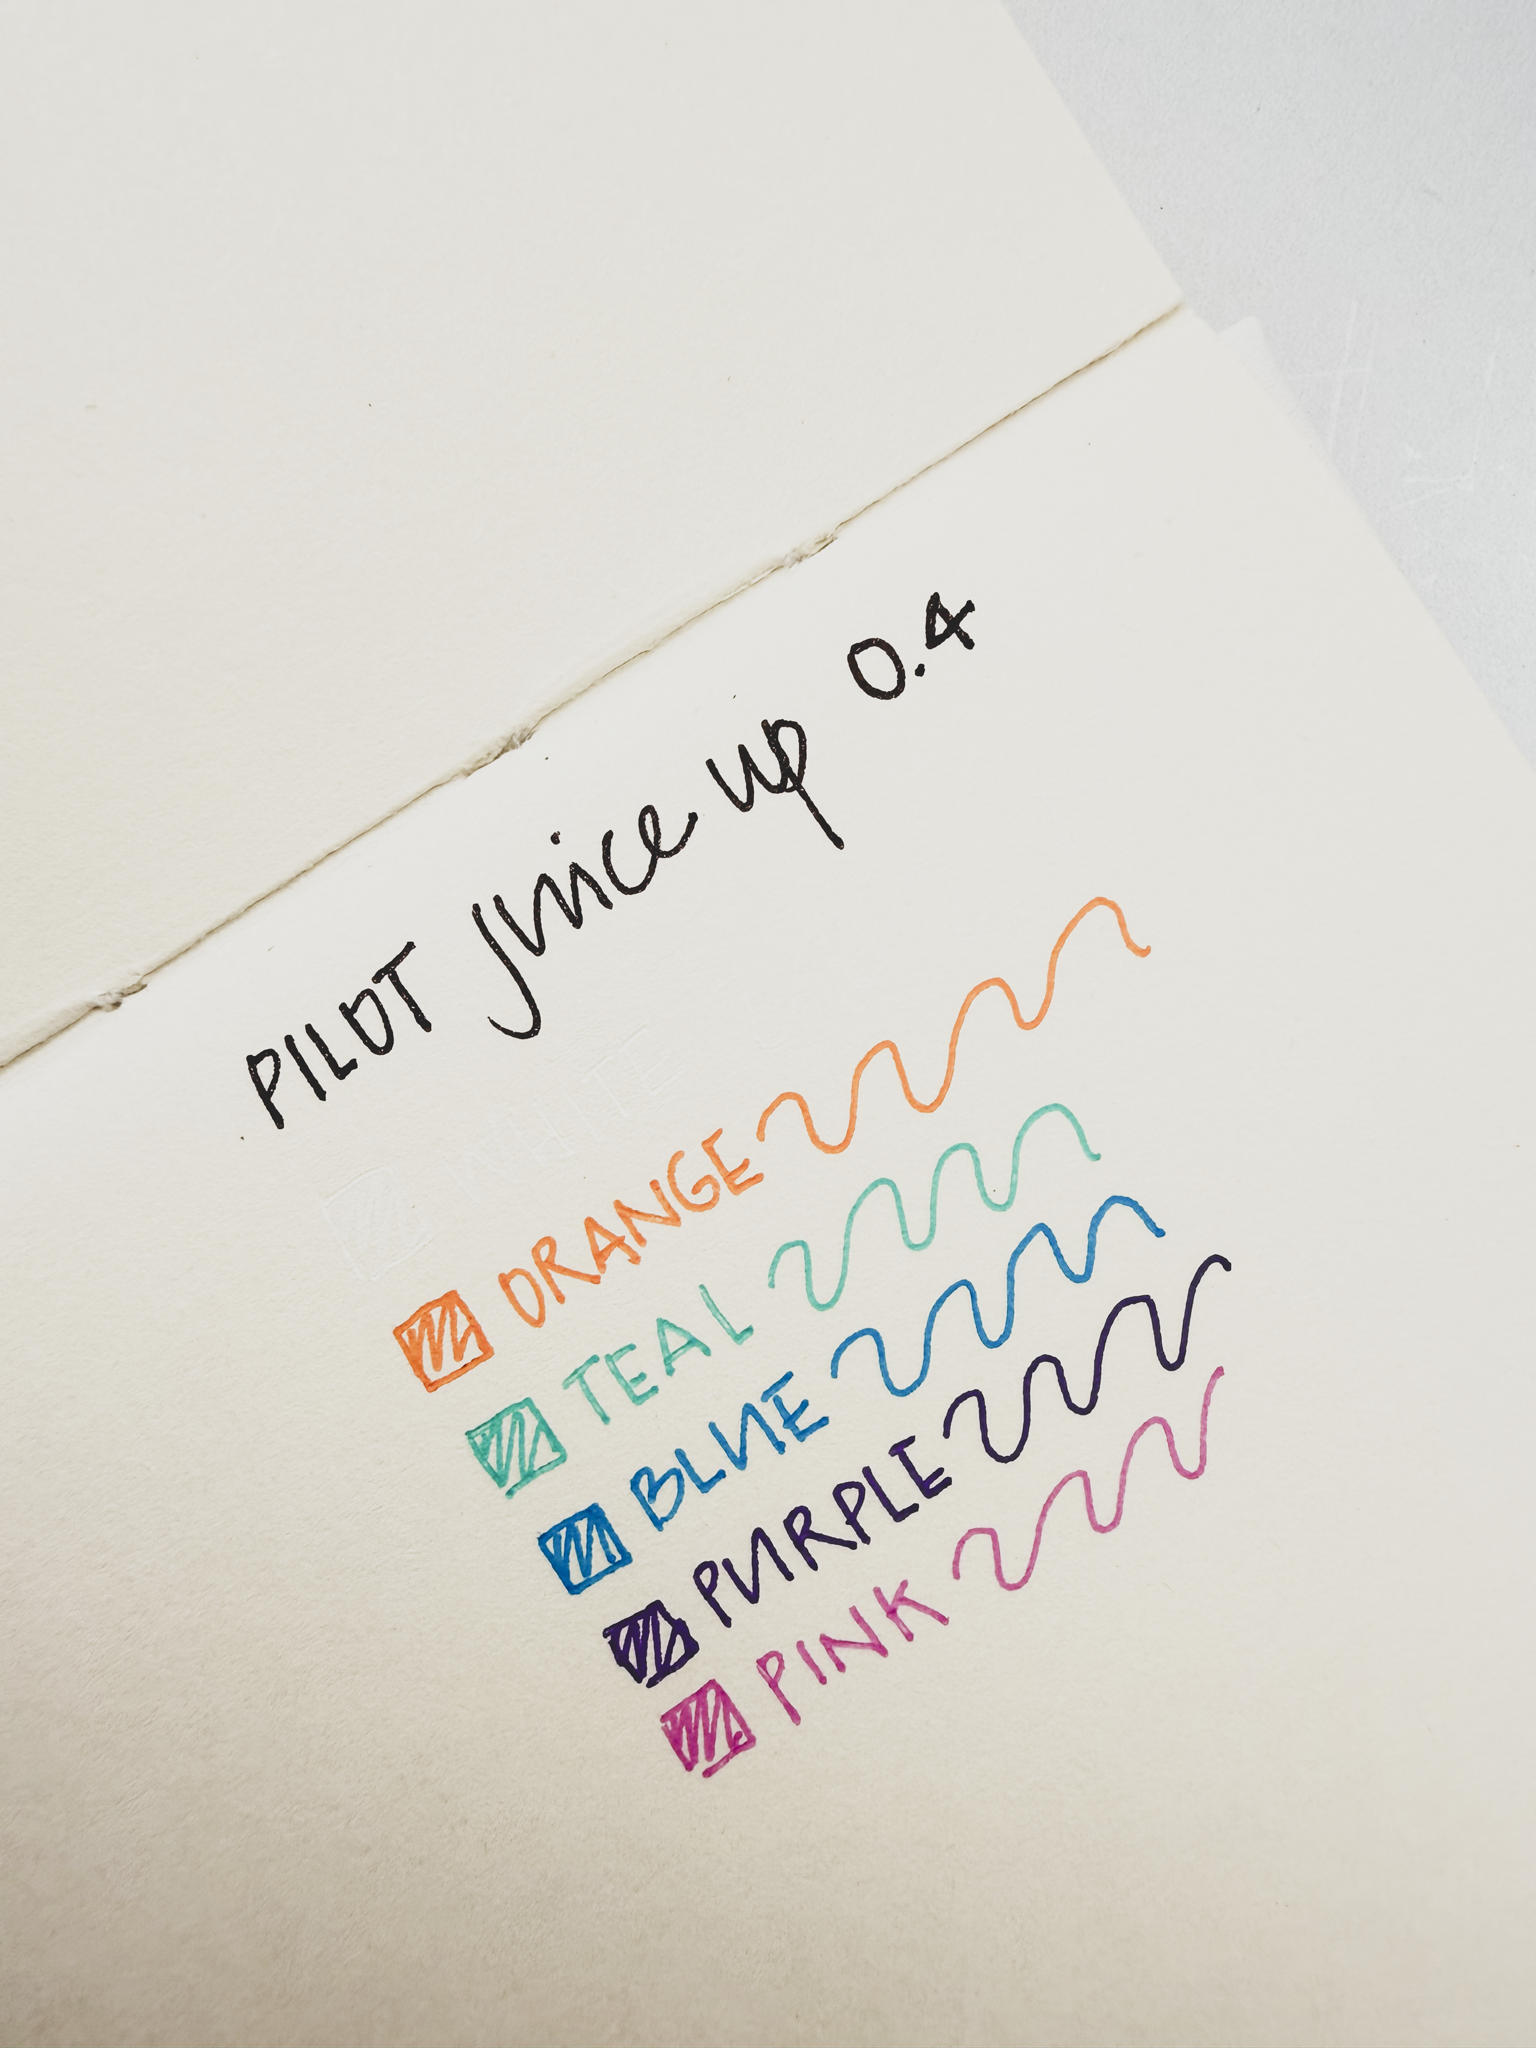 PILOT Juice up 0.4
WHITE
ORANGE
TEAL
BLUE
PURPLE
PINK